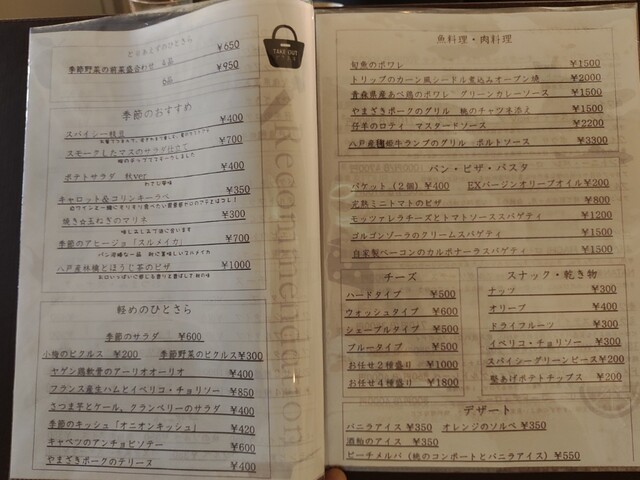 TAKE OUT
¥650
季節野菜の前菜盛合わせ 4品
6品 ¥950
季節のおすすめ
スパイシー枝豆 ¥400
スモークしたマスのサラダ仕立て ¥700
ポテトサラダ 秋ver ¥400
キャロット&コリンキーラペ ¥350
焼き☆玉ねぎのマリネ ¥300
季節のアヒージョ「スルメイカ」 ¥700
八戸産林檎とほうじ茶のピザ ¥1000
軽めのひとさら
季節のサラダ ¥600
小梅のピクルス ¥200 季節野菜のピクルス¥300
ヤゲン鶏軟骨のアーリオオーリオ ¥400
フランス産生ハムとイベリコ・チョリソー ¥850
さつま芋とケール、クランベリーのサラダ ¥400
季節のキッシュ「オニオンキッシュ」 ¥420
キャベツのアンチョビソテー ¥600
やまざきポークのテリーヌ ¥400
Recommendation
魚料理・肉料理
旬魚のポワレ ¥1500
トリップのカーン風シードル煮込みオーブン焼 ¥2000
青森県産あべ鶏のポワレ グリーンカレーソース ¥1500
やまざきポークのグリル 桃のチャツネ添え ¥1500
仔羊のロティ マスタードソース ¥2200
八戸産糠姫牛ランプのグリル ポルトソース ¥3300
パン・ピザ・パスタ
バケット(2個)¥400 EXバージンオリーブオイル¥200
完熟ミニトマトのピザ ¥800
モッツァレラチーズとトマトソーススパゲティ ¥1200
ゴルゴンゾーラのクリームスパゲティ ¥1500
自家製ベーコンのカルボナーラスパゲティ ¥1500
チーズ
ハードタイプ ¥500
ウォッシュタイプ ¥600
シェーブルタイプ ¥500
ブルータイプ ¥500
お任せ2種盛り ¥1000
お任せ4種盛り ¥1800
スナック・乾き物
ナッツ ¥300
オリーブ ¥400
ドライフルーツ ¥300
イベリコ・チョリソー ¥300
スパイシーグリーンピース¥200
堅あげポテトチップス ¥200
デザート
バニラアイス ¥350 オレンジのソルベ ¥350
酒粕のアイス ¥350
ピーチメルバ(桃のコンポートとバニラアイス)¥550